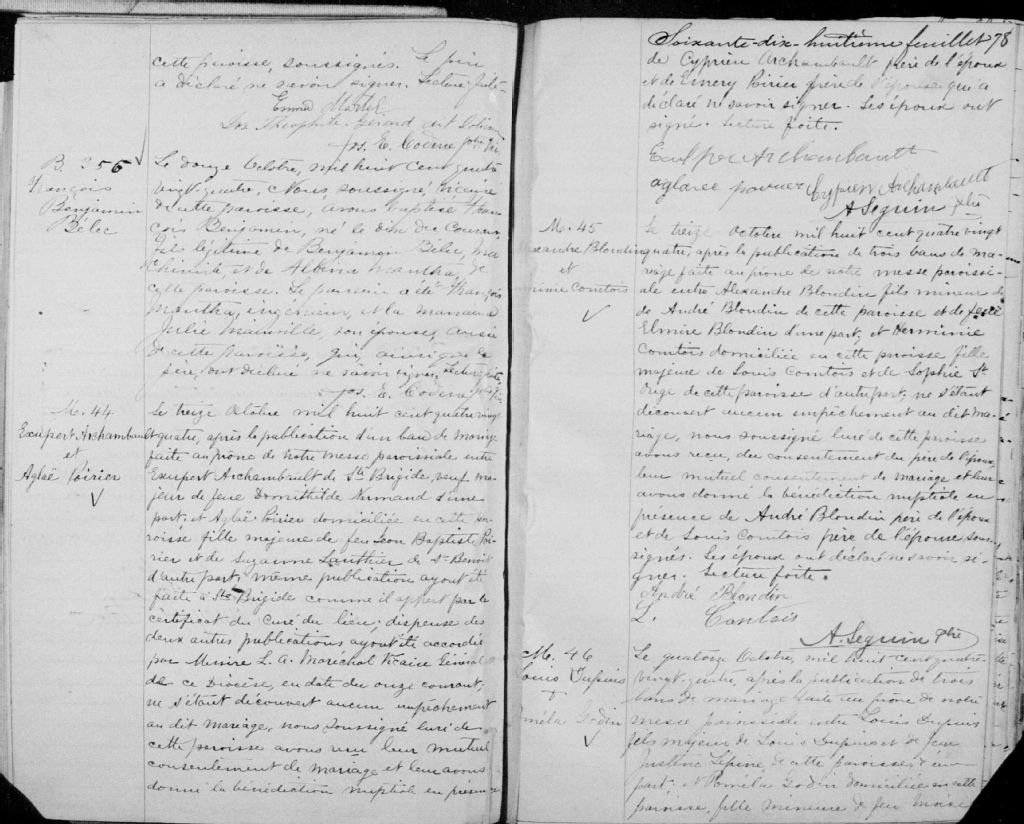 cette paroisse, soussignés. Le père
a déclaré ne savoir signer. Lecture faite
Jos. Théophile Girard dit
Jos. E. Coderre ptre Vic
B. 356
François
Benjamin
Bélec
Le douze Octobre, mil huit cent quatre
vingt-quatre, Nous soussigné, vicaire
de cette paroisse, avons baptisé Fran
cois Benjamin, né le dix du courant
fils légitime de Benjamin Bélec, ma
chiniste, et de Albina Mantha, de
cette paroisse. Le parrain a été François
Mantha, ingénieur, et la marraine
Julie Mainville, son épouse, aussi
de cette paroisse, qui, ainsi que le
père, ont déclaré ne savoir signer. Lecture faite,
Jos. E. Coderre ptre
M. 44
Exupert Archambault
et
Aglaë Poirier
Le treize Octobre mil huit cent quatre vingt
et quatre, après la publication d'un ban de mariage
faite au prône de notre messe paroissiale entre
Exupert Archambault de Ste Brigide, veuf ma-
jeur de feue Domithilde Normand d'une
part, et Aglaë Poirier domiciliée en cette pa-
roisse fille majeure de feu Léon Baptiste Poi-
rier et de Suzanne Lauthier de St Benoit
d'autre part; même publication ayant été
faite à Ste Brigide comme il appert par le
certificat du Curé du lieu; dispense des
deux autres publications ayant été accordée
par Messire L. A. Maréchal Vicaire Général
de ce Diocèse, en date du onze courant;
ne s'étant découvert aucun empêchement
au dit mariage, nous soussigné curé de
cette paroisse avons reçu leur mutuel
consentement de mariage et leur avons
donné la bénédiction nuptiale en présence
Soixante-dix-huitième feuillet 78
de Cyprien Archambault père de l'époux
et de Emery Poirier frère de l'épouse qui a
déclaré ne savoir signer. Les époux ont
signé. Lecture faite.
Archambault
Cyprien Archambault
A. Seguin ptre
M. 45
Alexandre Blondin
et
Herminie Comtois
Le treize Octobre mil huit cent quatre vingt
quatre, après la publication de trois bans de ma-
riage faite au prône de notre messe paroissi-
ale entre Alexandre Blondin fils mineur de
de André Blondin de cette paroisse et de feue
Elmire Blondin d'une part, et Herminie
Comtois domiciliée en cette paroisse fille
majeure de Louis Comtois et de Sophie St
Onge de cette paroisse d'autre part; ne s'étant
découvert aucun empêchement au dit ma-
riage, nous soussigné curé de cette paroisse
avons reçu, du consentement du père de l'époux,
leur mutuel consentement de mariage et leur
avons donné la bénédiction nuptiale en
présence de André Blondin père de l'époux
et de Louis Comtois père de l'épouse sous-
signés. Les époux ont déclaré ne savoir si-
gner. Lecture faite.
André Blondin
L. Contois
A. Seguin ptre
M. 46
Louis Dupuis
et
Roméla Godin
Le quatorze Octobre, mil huit cent quatre-
vingt-quatre, après la publication de trois
bans de mariage faite au prône de notre
messe paroissiale entre Louis Dupuis
fils majeur de Louis Dupuis et de feue
Justine Lépine de cette paroisse, d'une
part, et Roméla Godin domiciliée en cette
paroisse, fille mineure de feu Moïse